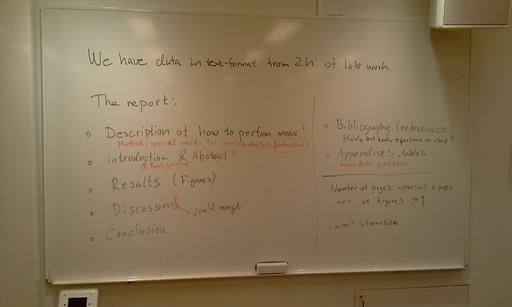 We have data in text-format from 2h of lab work
The report:
Description of how to perform meas.?
Methods, special words for semiconductor
Introduction & Abstract?
& Background
Results (Figures)
Discussion
could merge
Conclusion
Bibliography (references)
Mainly text book, equations in chap ?
Appendices, tables
more data goes here
Number of pages, 6 pages
of figures >1
Contact information